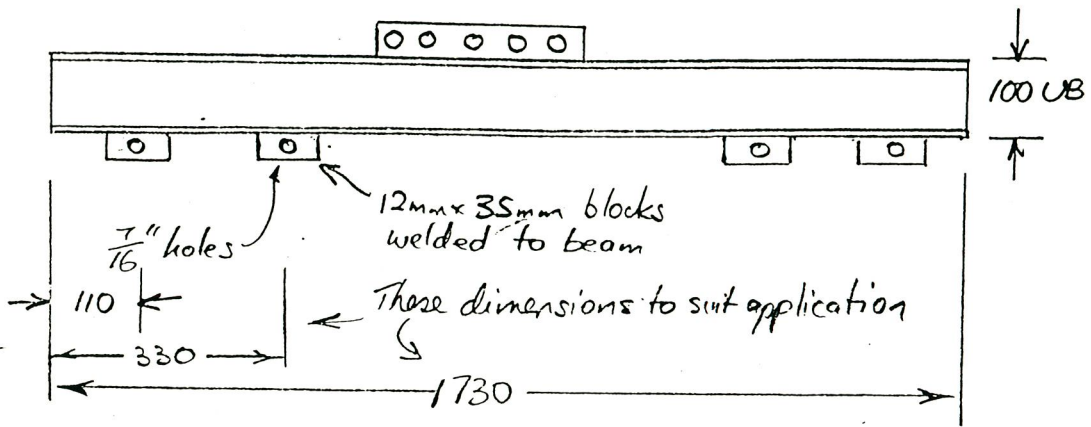 100 UB
12mm x 35mm blocks
welded to beam
7/16" holes
110
These dimensions to suit application
330
1730